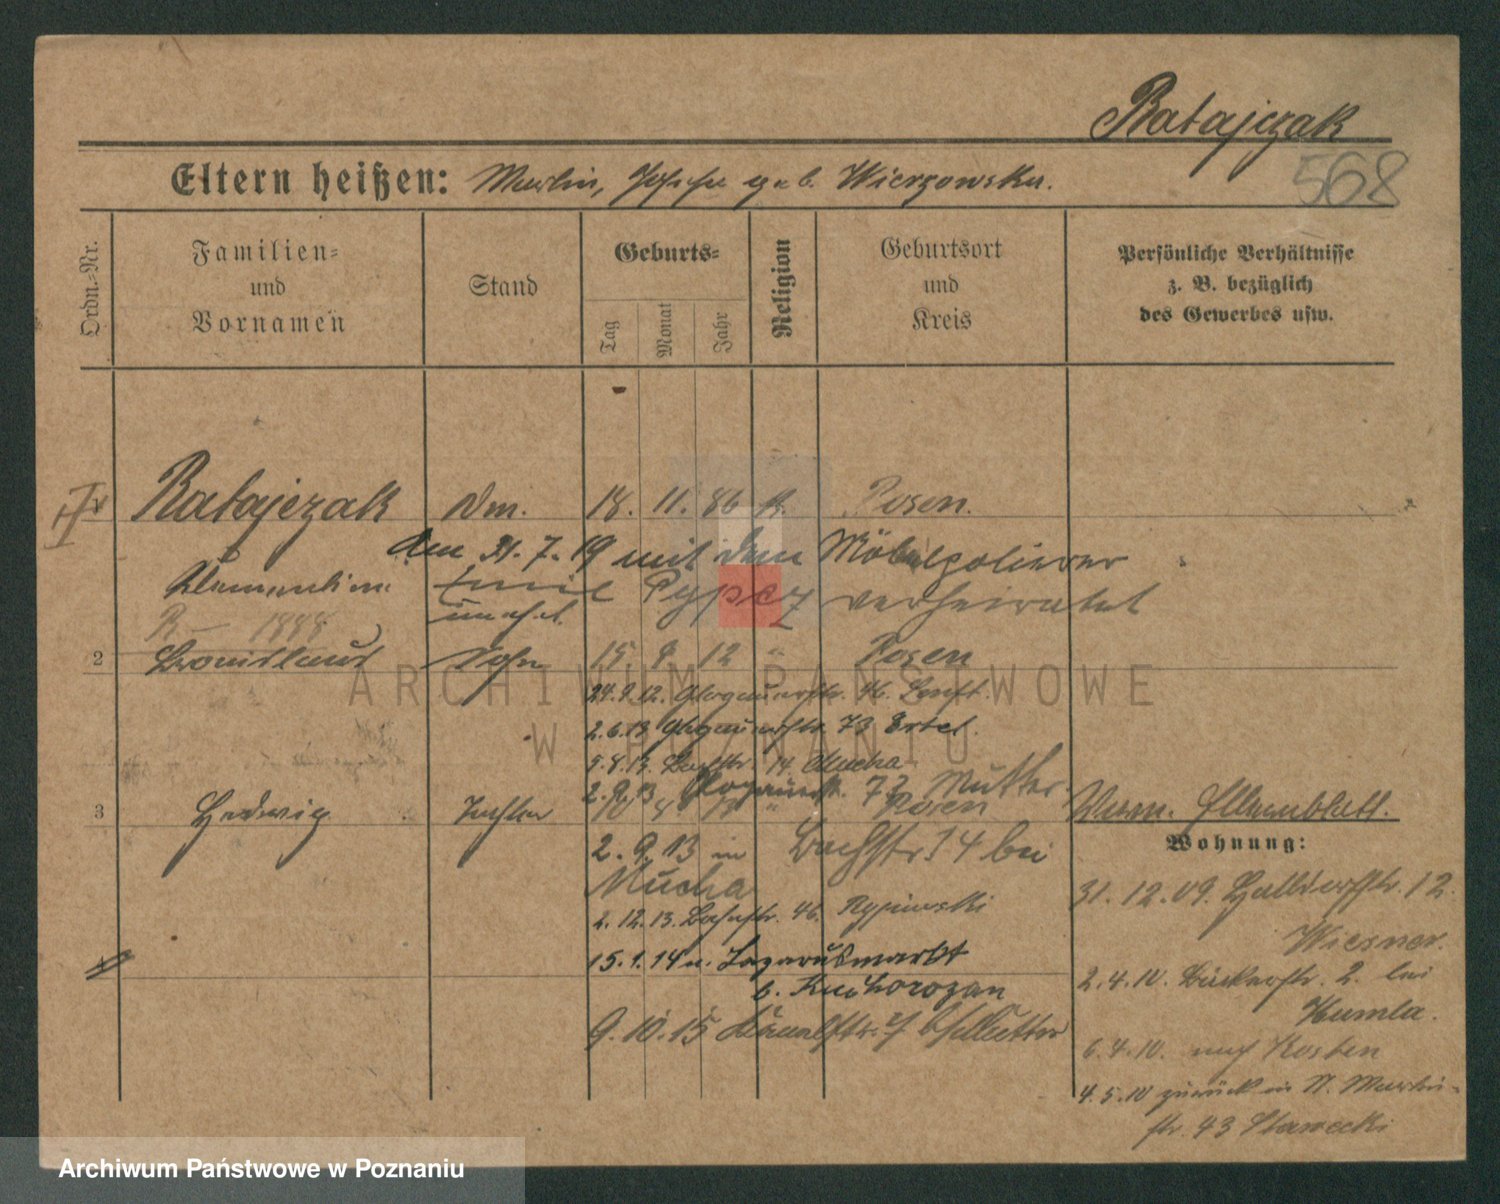 Ratajczak
568
Eltern heißen: Martin, Josefa geb. Wierzowska.
Ordn.-Nr.
Familien-
und
Vornamen
Stand
Geburts-
Tag
Monat
Jahr
Religion
Geburtsort
und
Kreis
Persönliche Verhältnisse
z. B. bezüglich
des Gewerbes usw.
Ratajczak Dm. 18. 11. 86 k. Posen.
am 21. 7. 19 mit dem Möbelpolierer
Klementine Emil verheiratet
unehel.
R 1888
2 Bronislaus Sohn 15 9 12 " Posen
24.9.12. Glogauerstr. 46.
2.6.13 Glogauerstr. 73 Ertel.
5.8.13. Bachstr. 14 Mucha
2.9.13 73 Mutter.
3 Hedwig Tochter " Posen
Verm. Elternblatt.
Wohnung:
2. 9. 13 in Bachstr. 14 bei
Mucha
2.12.13. 46.
15.1.14 n. Lazarusmarkt
b.
9.10.15
31.12.09. Halldorfstr. 12.
Wiesner.
2.4.10. Bäckerstr. 2. bei
Kumla.
6.4.10. nach Kosten
4.5.10 zurück in St. Martin-
str. 43 Stawecki
ARCHIWUM PAŃSTWOWE
W POZNANIU
Archiwum Państwowe w Poznaniu